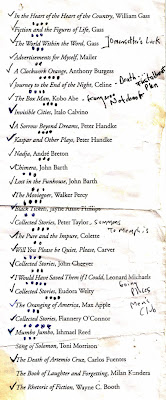 In the Heart of the Heart of the Country, William Gass
Fiction and the Figures of Life, Gass
The World Within the Word, Gass
Advertisements for Myself, Mailer
A Clockwork Orange, Anthony Burgess
Journey to the End of the Night, Celine
The Box Man, Kobo Abe
Invisible Cities, Italo Calvino
A Sorrow Beyond Dreams, Peter Handke
Kaspar and Other Plays, Peter Handke
Nadja, André Breton
Chimera, John Barth
Lost in the Funhouse, John Barth
The Moviegoer, Walker Percy
Black Tickets, Jayne Anne Phillips
Collected Stories, Peter Taylor, Summons
To Memphis
The Pure and the Impure, Colette
Will You Please be Quiet, Please, Carver
Collected Stories, John Cheever
I Would Have Saved Them if I Could, Leonard Michaels
Going Places
Collected Stories, Eudora Welty
The Oranging of America, Max Apple
Men's Club
Collected Stories, Flannery O'Connor
Mumbo Jumbo, Ishmael Reed
Song of Solomon, Toni Morrison
The Death of Artemio Cruz, Carlos Fuentes
The Book of Laughter and Forgetting, Milan Kundera
The Rhetoric of Fiction, Wayne C. Booth